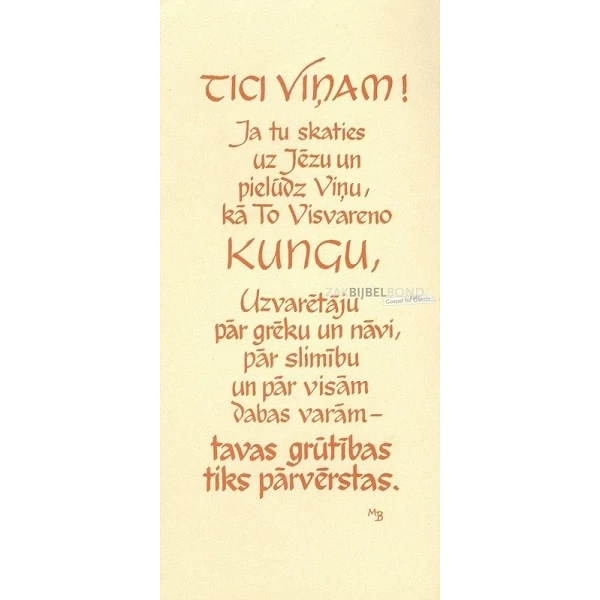 TICI VIŅAM!
Ja tu skaties
uz Jēzu un
pielūdz Viņu,
kā To Visvareno
KUNGU,
ZAKBIJBELBOND
Uzvarētāju
pār grēku un nāvi,
pār slimību
un pār visām
dabas varām–
tavas grūtības
tiks pārvērstas.
MB